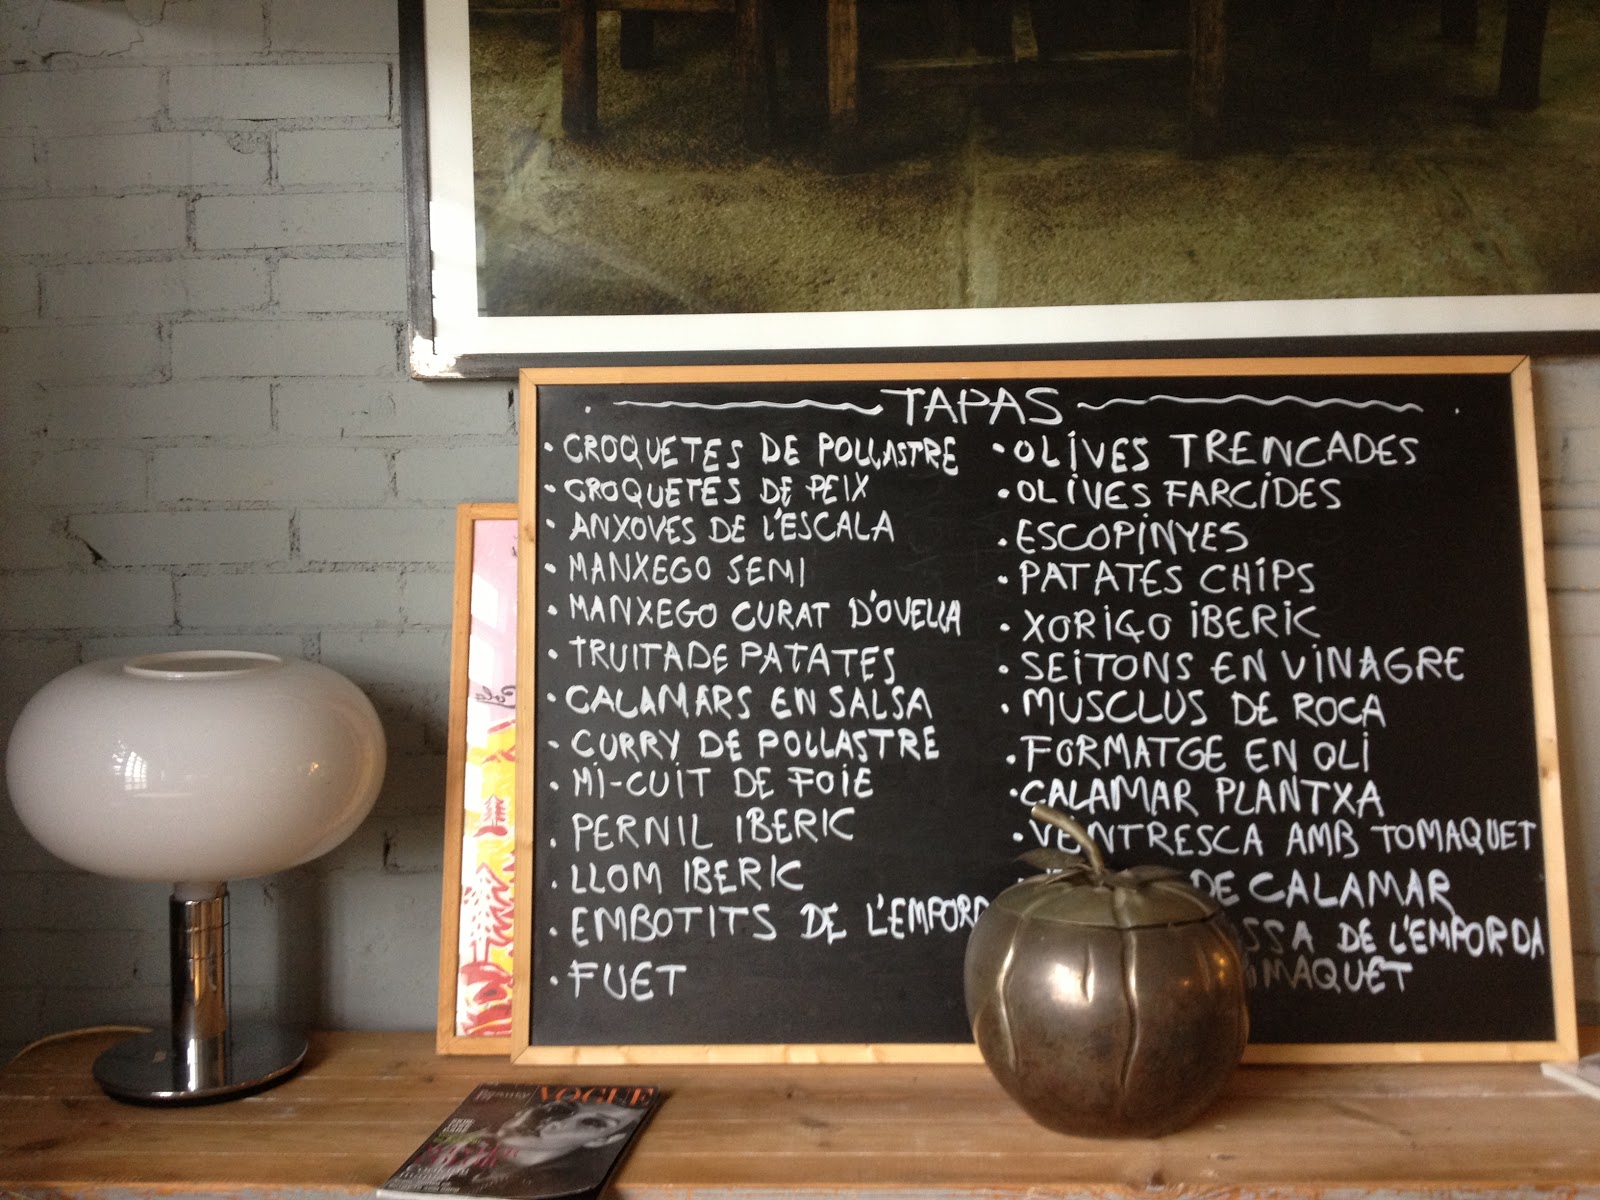 TAPAS
CROQUETES DE POLLASTRE
CROQUETES DE PEIX
ANXOVES DE L'ESCALA
MANXEGO SEMI
MANXEGO CURAT D'OVELLA
TRUITA DE PATATES
CALAMARS EN SALSA
CURRY DE POLLASTRE
MI-CUIT DE FOIE
PERNIL IBERIC
LLOM IBERIC
EMBOTITS DE L'EMPORD
FUET
OLIVES TRENCADES
OLIVES FARCIDES
ESCOPINYES
PATATES CHIPS
XORIÇO IBERIC
SEITONS EN VINAGRE
MUSCLUS DE ROCA
FORMATGE EN OLI
CALAMAR PLANTXA
VENTRESCA AMB TOMAQUET
DE CALAMAR
SSA DE L'EMPORDA
MAQUET
VOGUE